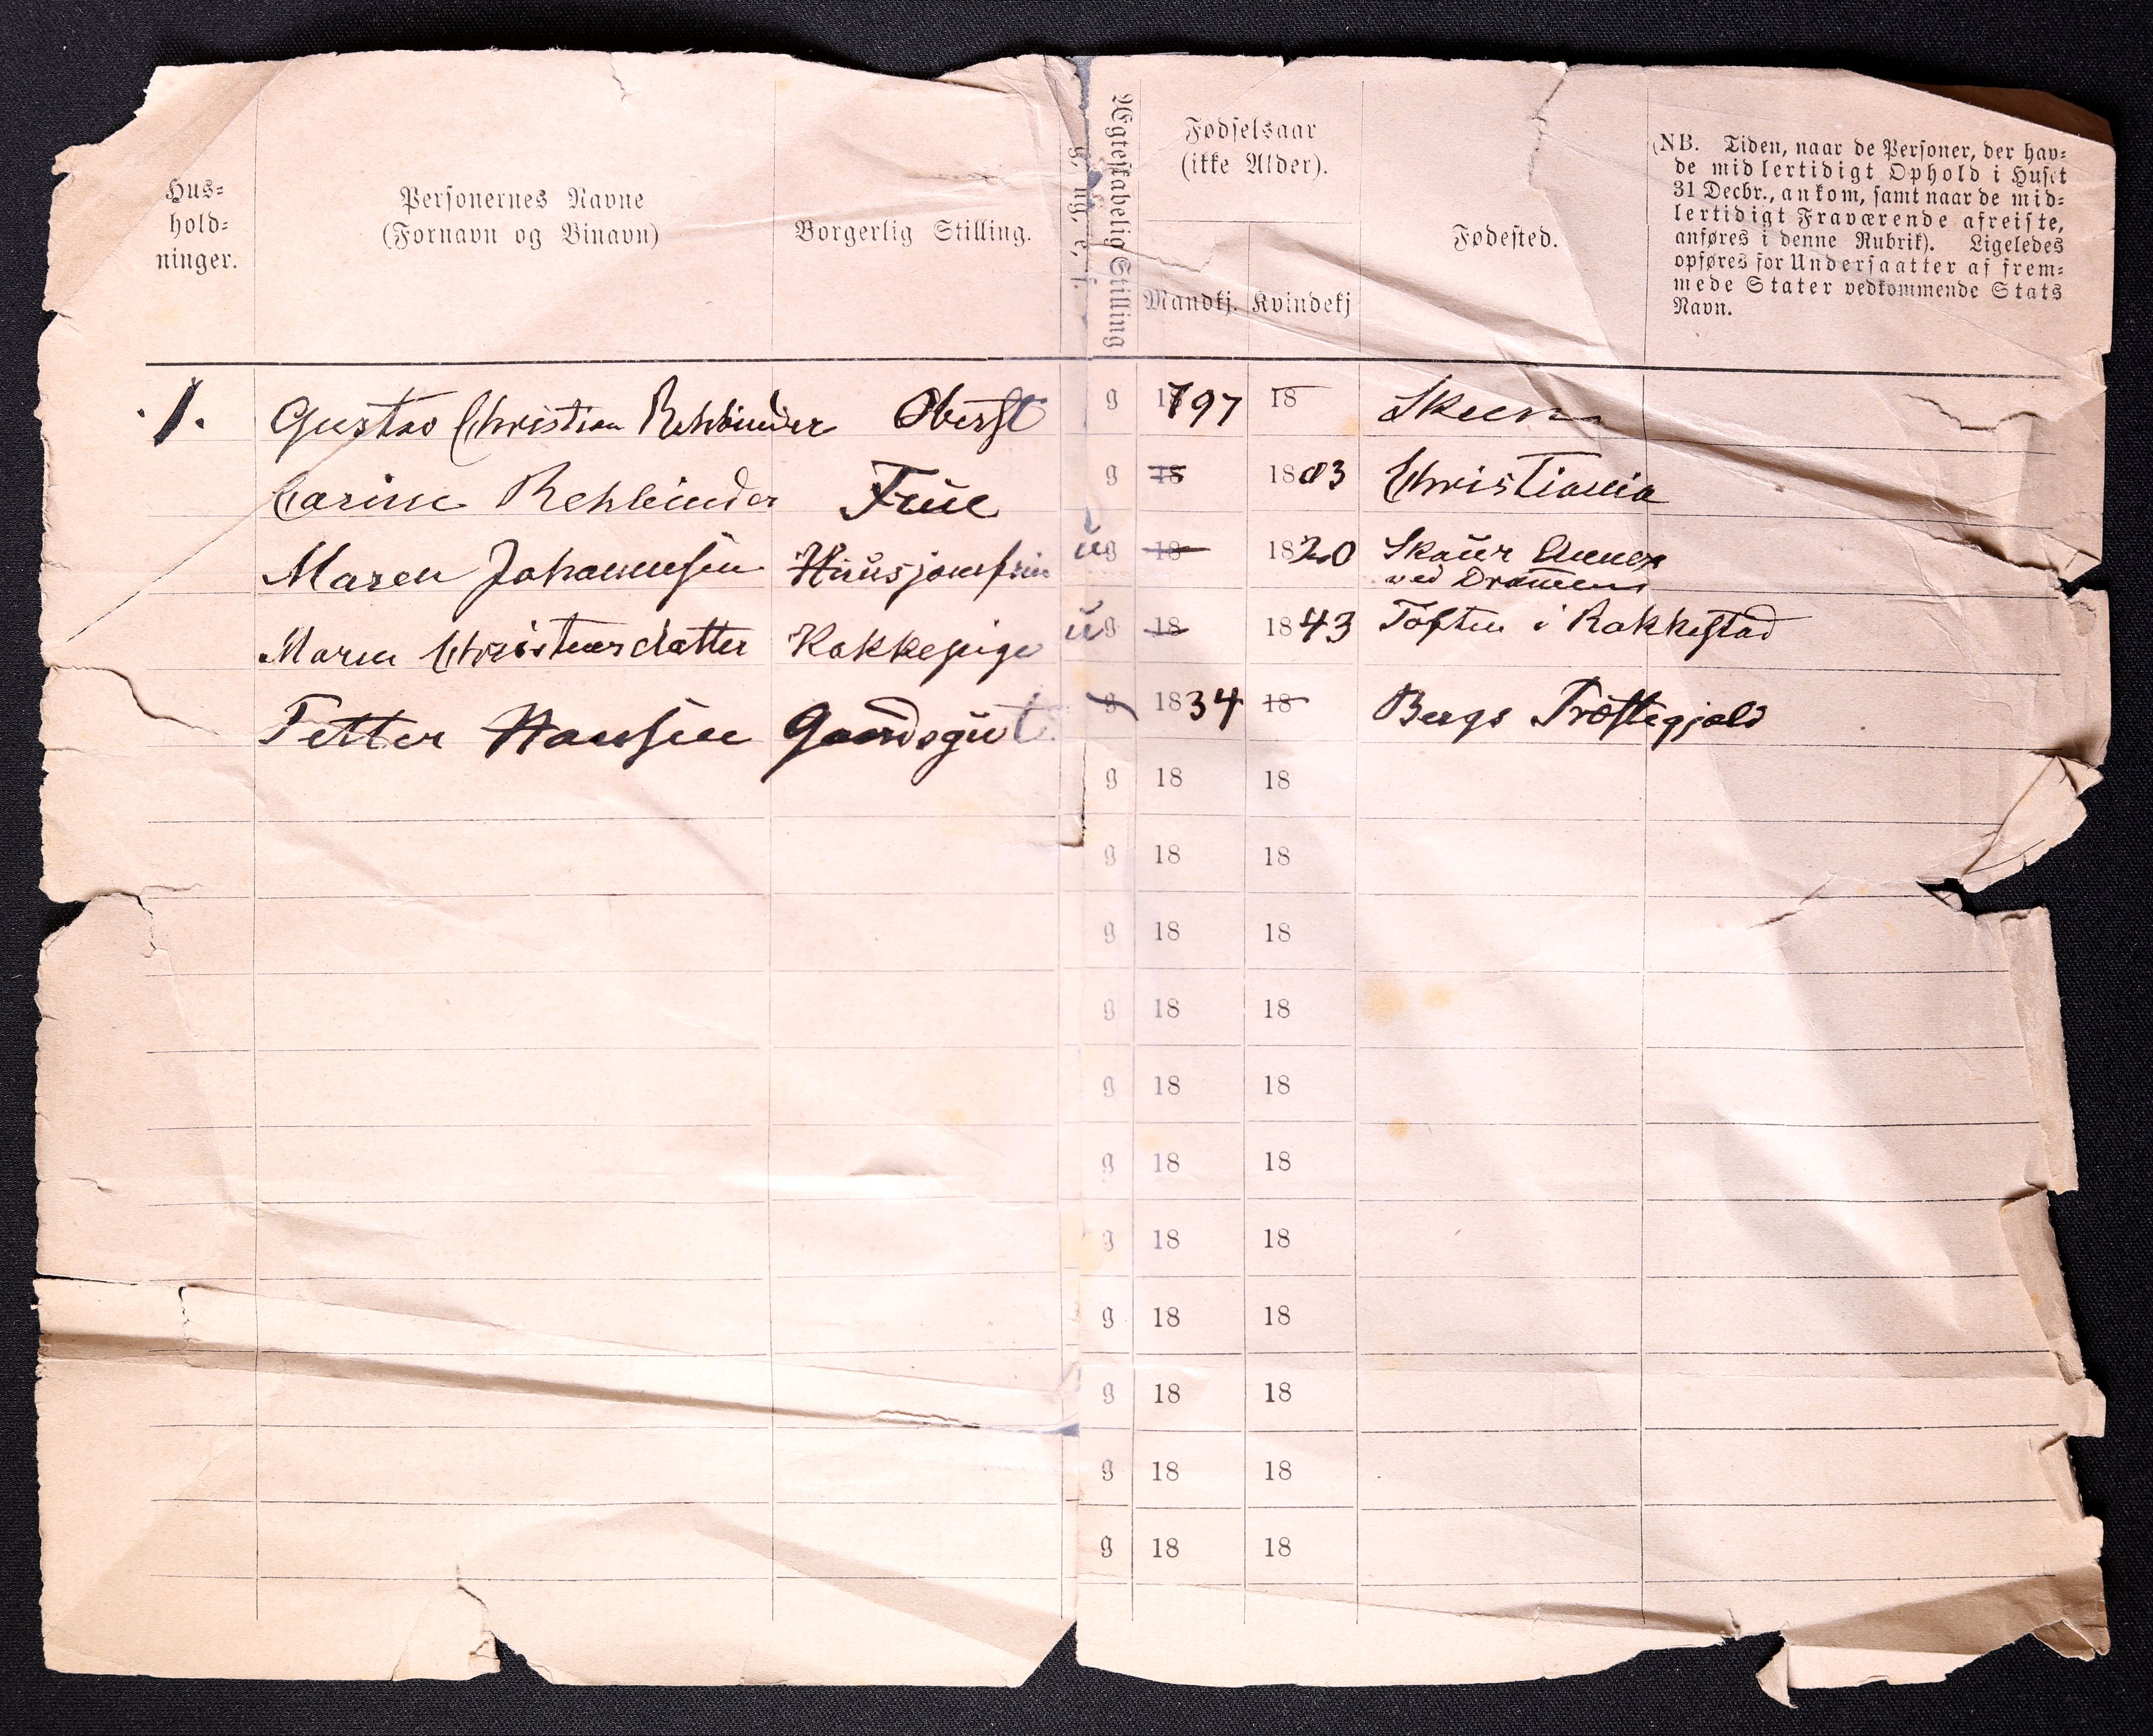 Hus=
hold=
ninger.
Personernes Navne
(Fornavn og Binavn)
Borgerlig Stilling.
Ægteskabelig Stilling
g, ug, e, f.
Fødselsaar
(ikke Alder).
Mandkj. Kvindekj
Fødested.
(NB. Tiden, naar de Personer, der hav=
de midlertidigt Ophold i Huset
31 Decbr., ankom, samt naar de mid=
lertidigt Fraværende afreiste,
anføres i denne Rubrik). Ligeledes
opføres for Undersaatter af frem=
mede Stater vedkommende Stats
Navn.
1. Gustav Christian Rehbinder Oberst g 1797 18 Skeen
Carine Rehbinder Frue g 18 1803 Christiania
Maren Johannesen Huusjomfru ug 18 1820 Skouer Annex
ved Dramen
Maren Christensdatter Kokkepige ug 18 1843 Toften i Rakkestad
Petter Hansen Gaardsgut g 1834 18 Bergs Præstegjæld
g 18 18
g 18 18
g 18 18
g 18 18
g 18 18
g 18 18
g 18 18
g 18 18
g 18 18
g 18 18
g 18 18